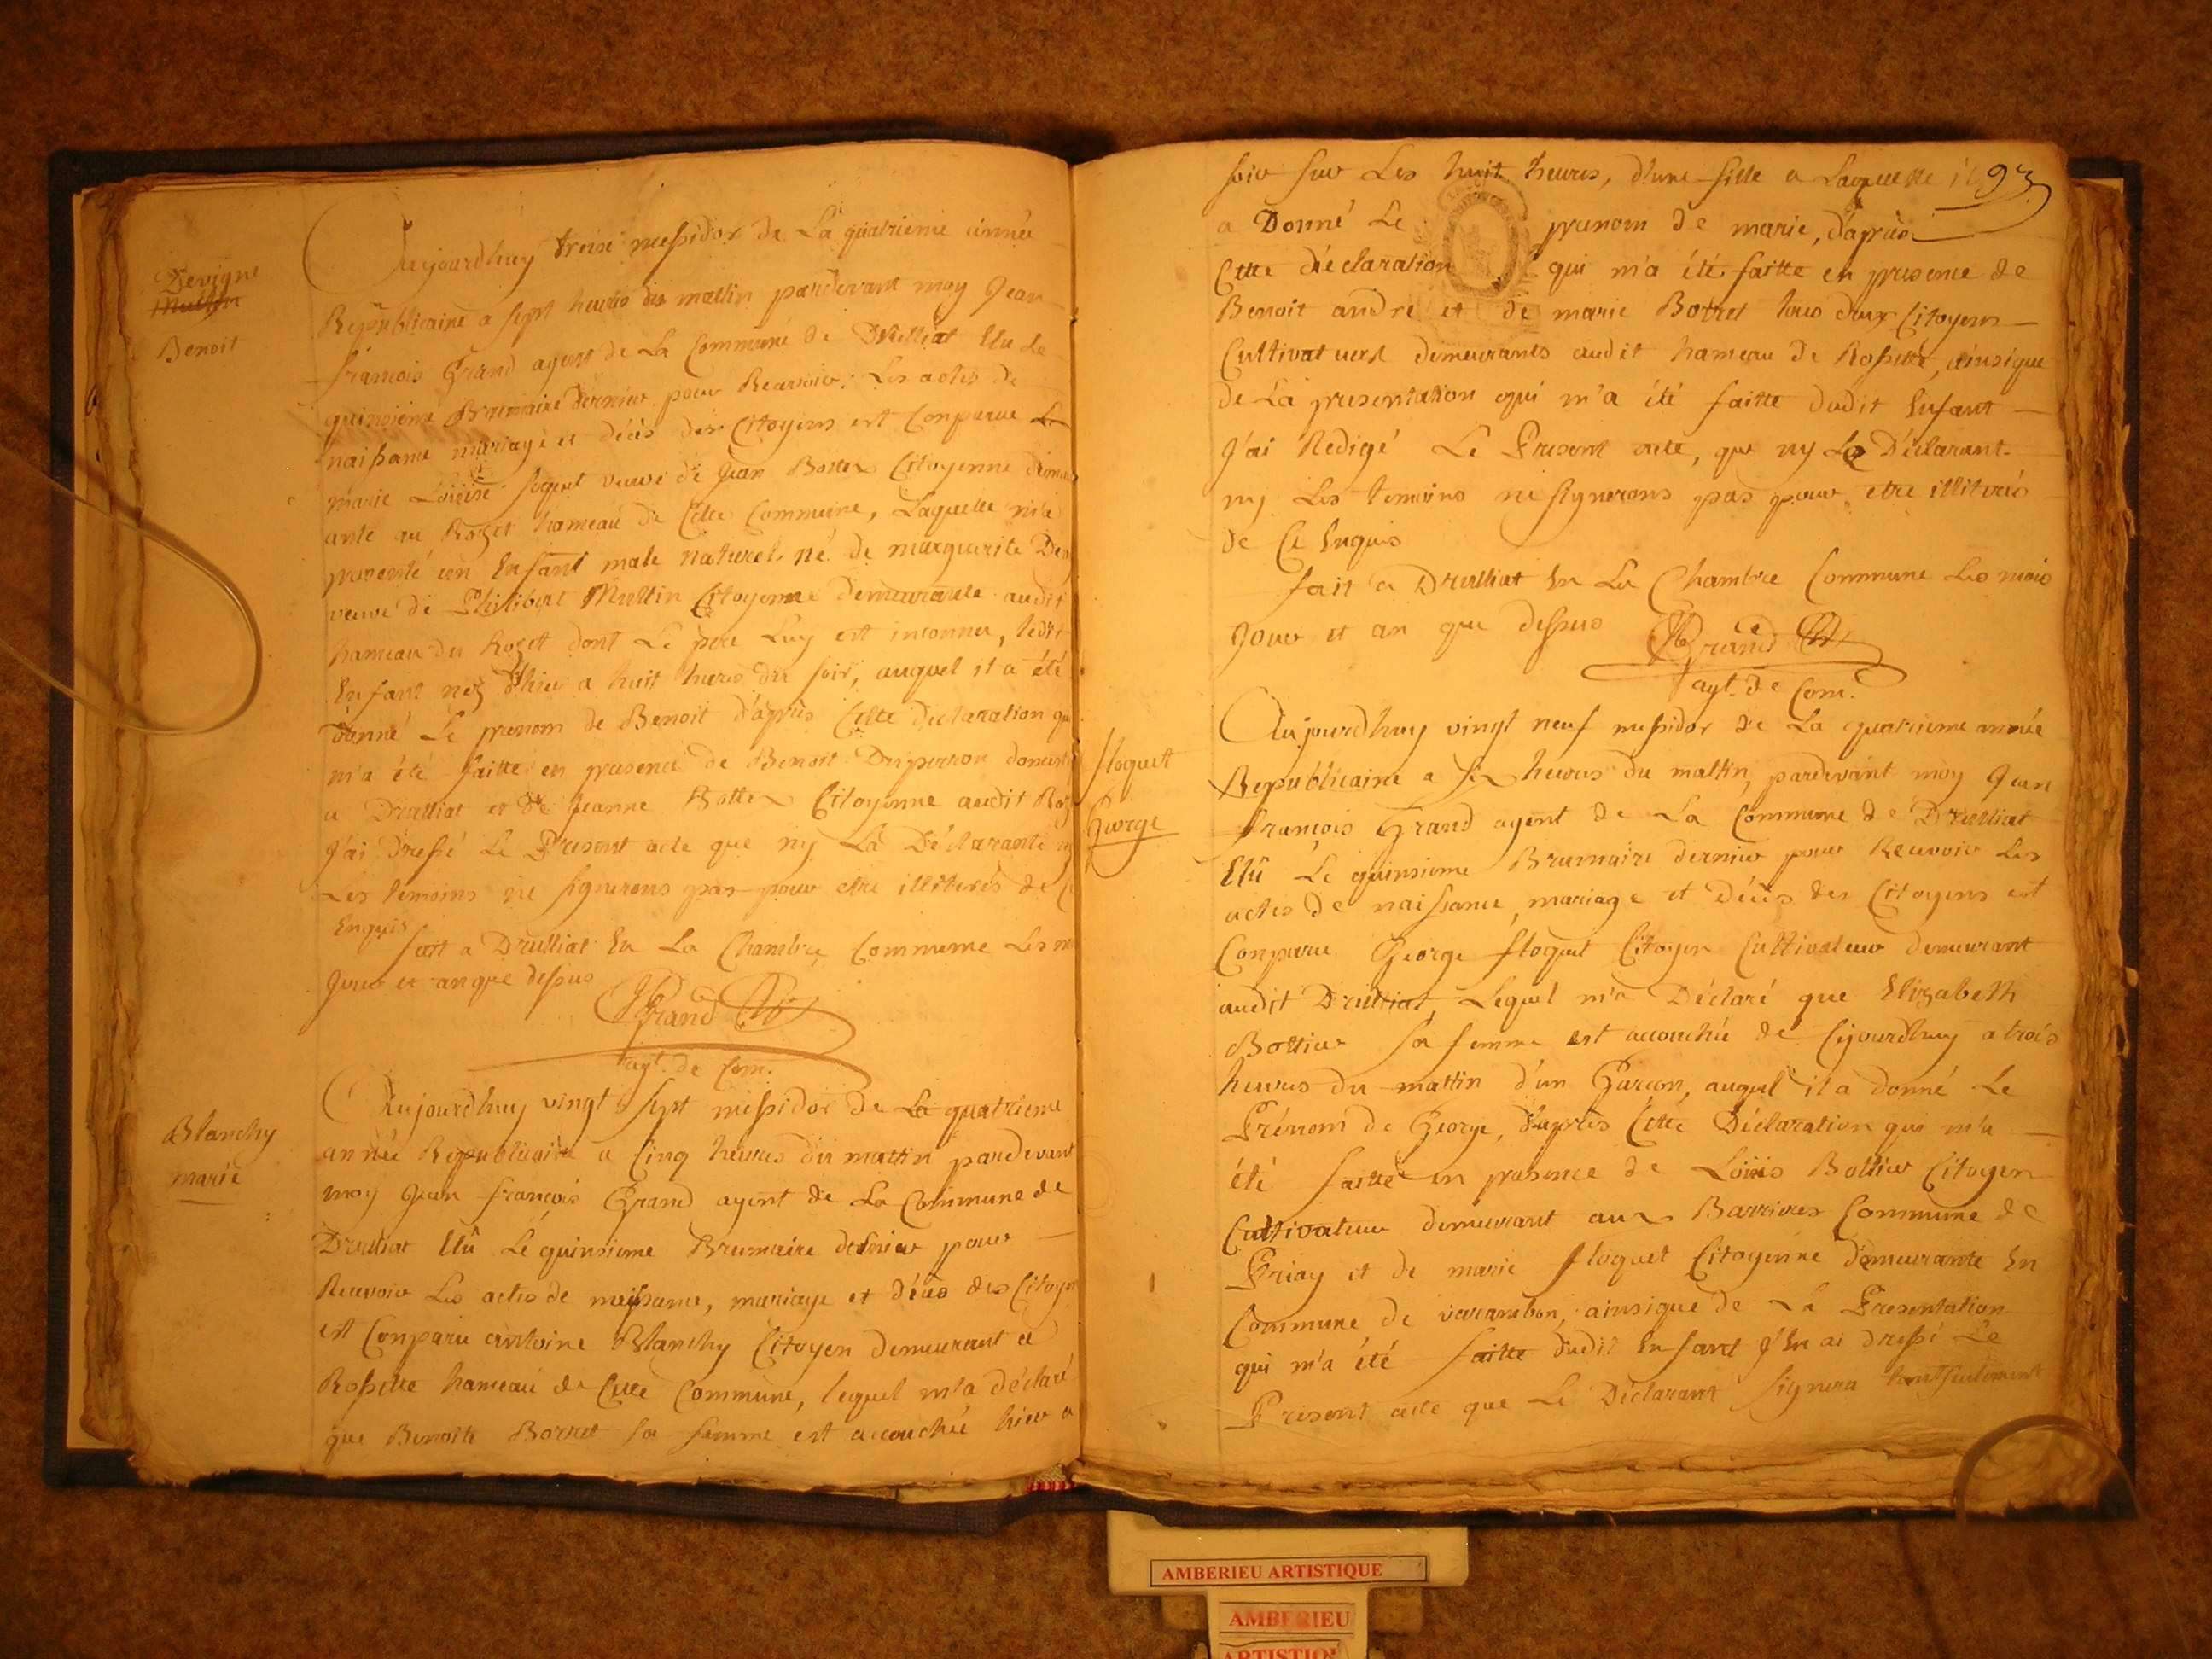 Devigne
Mullin
Benoit
Aujourdhuy treise messidor de La quatrieme année
Republicaine a sept heures du mattin pardevant moy Jean
françois Grand agent de La Commune de Druilliat Elu Le
quinsieme Brumaire dernier pour Recevoir Les actes de
naissance mariage et décès des Citoyens est Comparue
marie Loüise foquet veuve de Jean Bottex Citoyenne demeur
ante au Rozet hameau de Cette Commune, Laquelle m'a
presenté un Enfant male naturel né de marguerite De
veuve de Philibert Mullin Citoyenne demeurante audit
hameau du Rozett dont Le pere Luy est inconnu, ledit
Enfant nez d'hier a huit heures du soir, auquel il a été
Donné Le prenom de Benoit d'après Cette declaration qui
m'a été faitte en presence de Benoit Duperron
a Druilliat et de Jeanne Bottex Citoyenne audit Roz
J'ai Dressé Le Present acte que ny La Déclarante ny
Les temoins ne signerons pas pour etre illiterés de Ce
Enquis
fait a Druilliat En La Chambre Commune Les m
Jour et an que dessus
JfGrand
agt. de Com.
Blanchy
marie
Aujourdhuy vingt sept messidor de La quatrieme
année Republicaine a Cinq heures du mattin pardevant
moy Jean françois Grand agent de La Commune de
Druiliat Elû Le quinsieme Brumaire dernier pour
Recevoir Les actes de naissance, mariage et décès des Citoyen
est Conparu antoine Blanchy Citoyen demeurant a
Rossette hameau de Cette Commune, lequel m'a déclaré
que Benoite Borret sa femme est accouchée hier a
soir sur Les huit heures, d'une fille a Laquelle il 93
a Donné Le prenom de marie, d'après
Cette déclaration qui m'a été faitte en presence de
Benoit andre et de marie Borret tous deux Citoyens
Cultivateurs demeurants audit hameau de Rossette, ainsique
de La presentation qui m'a été faitte dudit Enfant
J'ai Redigé Le Present acte, que ny Le Déclarant
ny Les temoins ne signerons pas pour etre illiterés
de Ce Enquis
fait a Druilliat En La Chambre Commune Les mois
Jour et an que dessus
JfGrand
agt. de Com.
floquet
George
Aujourdhuy vingt neuf messidor de La quatrieme année
Republicaine a six heures du mattin, pardevant moy Jean
françois Grand agent de La Commune de Druilliat
Elû Le quinsieme Brumaire dernier pour Recevoir Les
actes de naissance, mariage et Décès des Citoyens est
Conparu George floquet Citoyen Cultivateur demeurant
audit Druilliat, Lequel m'a Déclaré que Elizabeth
Bottier sa femme est accouchée de Cejourdhuy a trois
heures du mattin d'un Garcon, auquel il a donné Le
Prénom de George, d'après Cette Déclaration qui m'a
été faitte en presence de Loüis Bottier Citoyen
Cultivateur demeurant aux Barrieres Commune de
Priay et de marie floquet Citoyenne demeurante En
Commune de varambon, ainsique de La Presentation
qui m'a été faitte dudit Enfant J'En ai dressé Le
Présent acte que Le Déclarant signera tantseulement
AMBERIEU ARTISTIQUE
AMBERIEU
ARTISTIQ